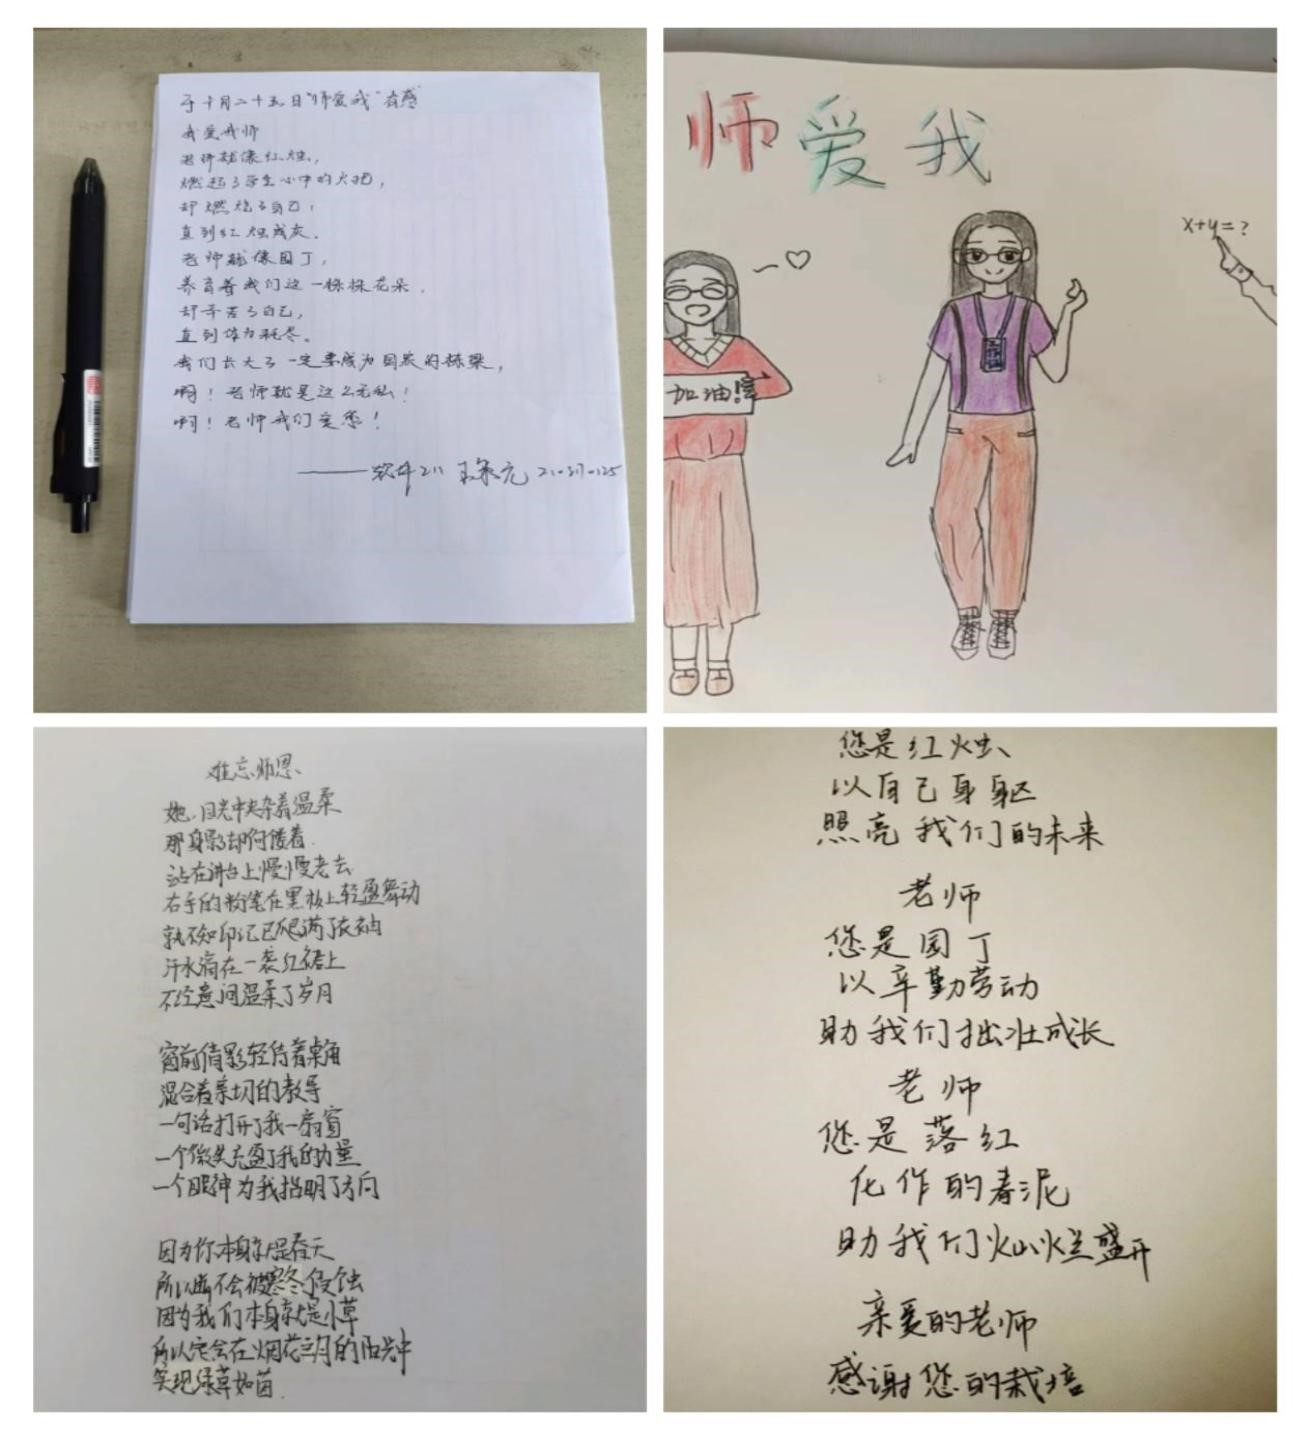 于十月二十五日“师爱我”有感
我爱我师
老师就像红烛，
燃起了学生心中的火把，
却燃烧了自己，
直到红烛成灰。
老师就像园丁，
养育着我们这一株株花朵，
却辛苦了自己，
直到体力耗尽。
我们长大了一定要成为国家的栋梁，
啊！老师就是这么无私！
啊！老师我们爱您！
——软件211
师爱我
x+y=?
加油!
难忘师恩
她，目光中夹杂着温柔
那身影却佝偻着
站在讲台上慢慢老去
右手的粉笔在黑板上轻盈舞动
孰不知印记已爬满了衣袖
汗水滴在一袭红裙上
不经意间温柔了岁月
窗前倩影轻倚着桌角
混合着亲切的教导
一句话打开了我一扇窗
一个微笑充盈了我的力量
一个眼神为我指明了方向
因为你本身就是春天
所以断不会被寒冬侵蚀
因为我们本身就是小草
所以定会在烟花三月的阳光中
实现绿草如茵
您是红烛
以自己身躯
照亮我们的未来
老师
您是园丁
以辛勤劳动
助我们茁壮成长
老师
您是落红
化作的春泥
助我们灿烂盛开
亲爱的老师
感谢您的栽培